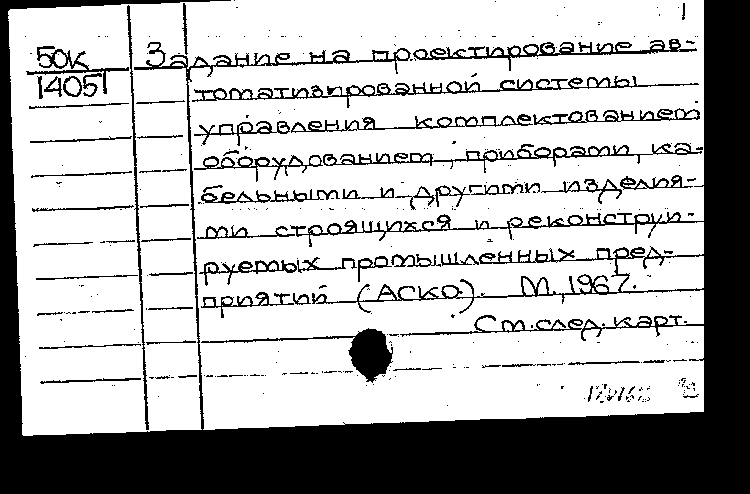 1
50К Задание на проектирование ав-
14051 томатизированной системы
управления комплектованием
оборудованием, приборами, ка-
бельными и другими изделия-
ми строящихся и реконструи-
руемых промышленных пред-
приятий (АСКО). М., 1967.
См. след. карт.